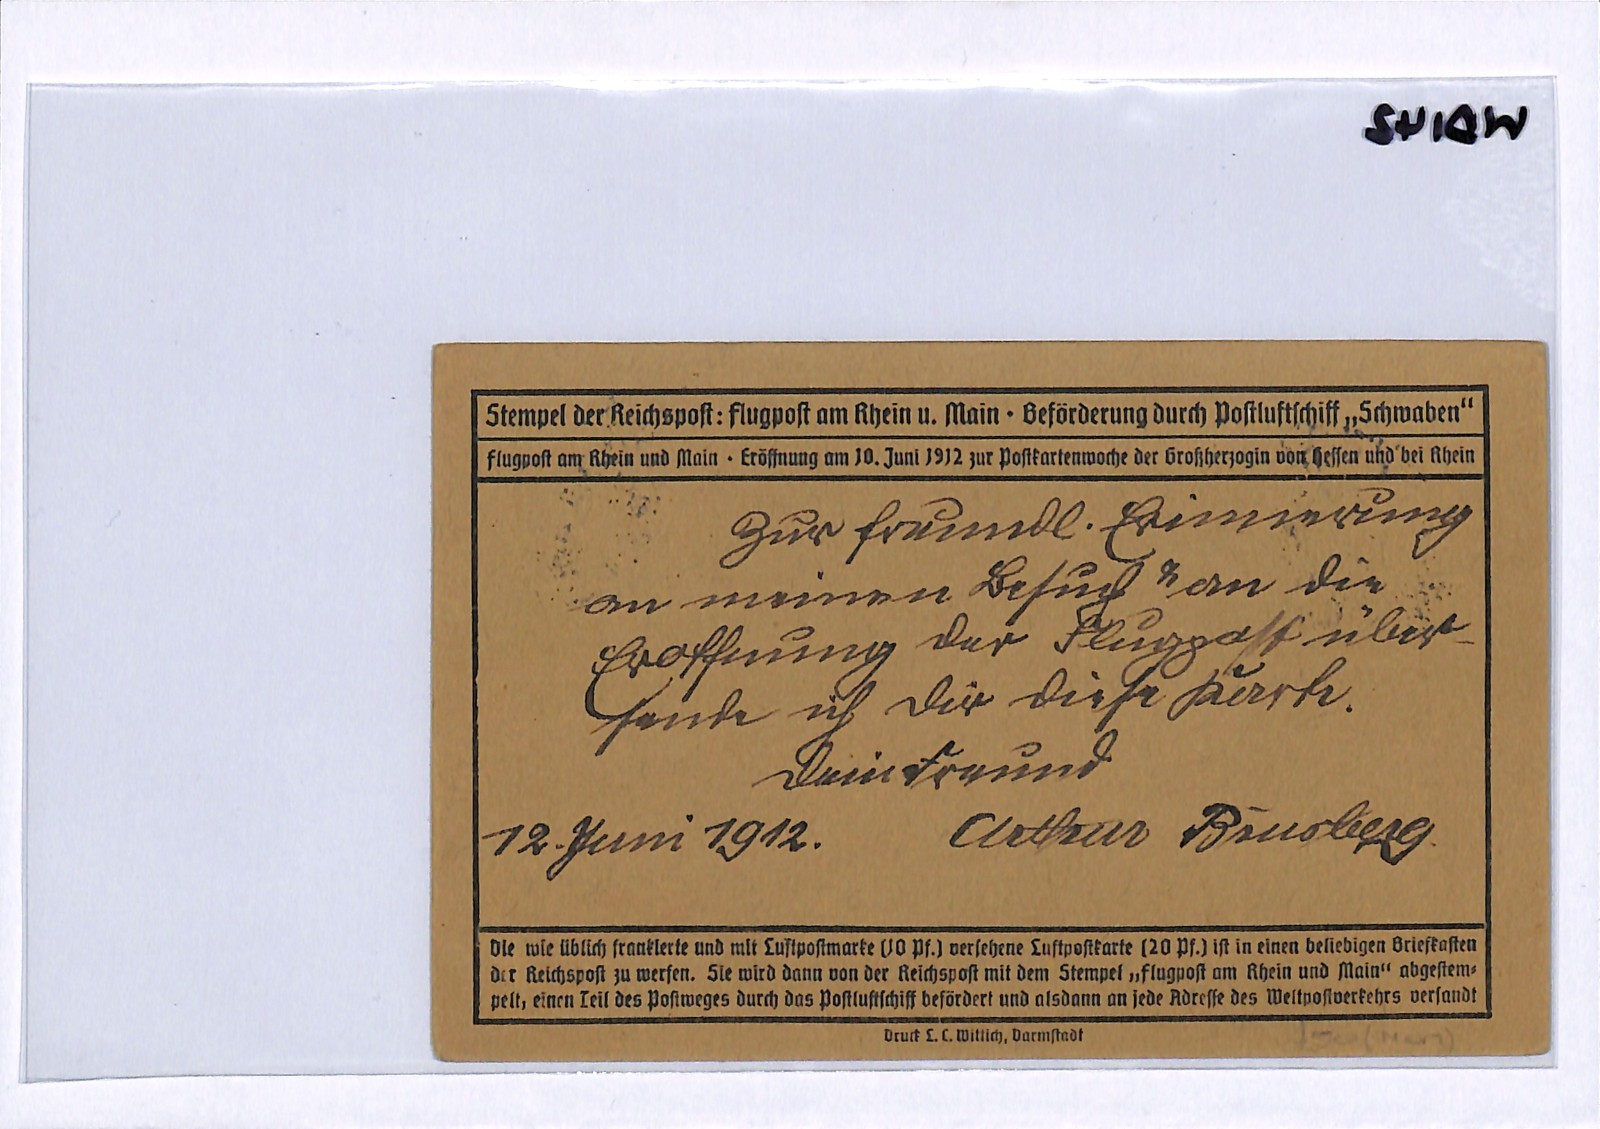 Stempel der Reichspost: Flugpost am Rhein u. Main · Beförderung durch Postluftschiff „Schwaben“
Flugpost am Rhein und Main · Eröffnung am 10. Juni 1912 zur Postkartenwoche der Großherzogin von Hessen und bei Rhein
Zur freundl. Erinnerung
an meinen Besuch an die
Eröffnung der Flugpost über-
sende ich Dir diese Karte.
Dein Freund
12. Juni 1912. Arthur
Die wie üblich frankierte und mit Luftpostmarke (10 Pf.) versehene Luftpostkarte (20 Pf.) ist in einen beliebigen Briefkasten
der Reichspost zu werfen. Sie wird dann von der Reichspost mit dem Stempel „Flugpost am Rhein und Main“ abgestem-
pelt, einen Teil des Postweges durch das Postluftschiff befördert und alsdann an jede Adresse des Weltpostverkehrs versandt
Druck L. C. Wittich, Darmstadt